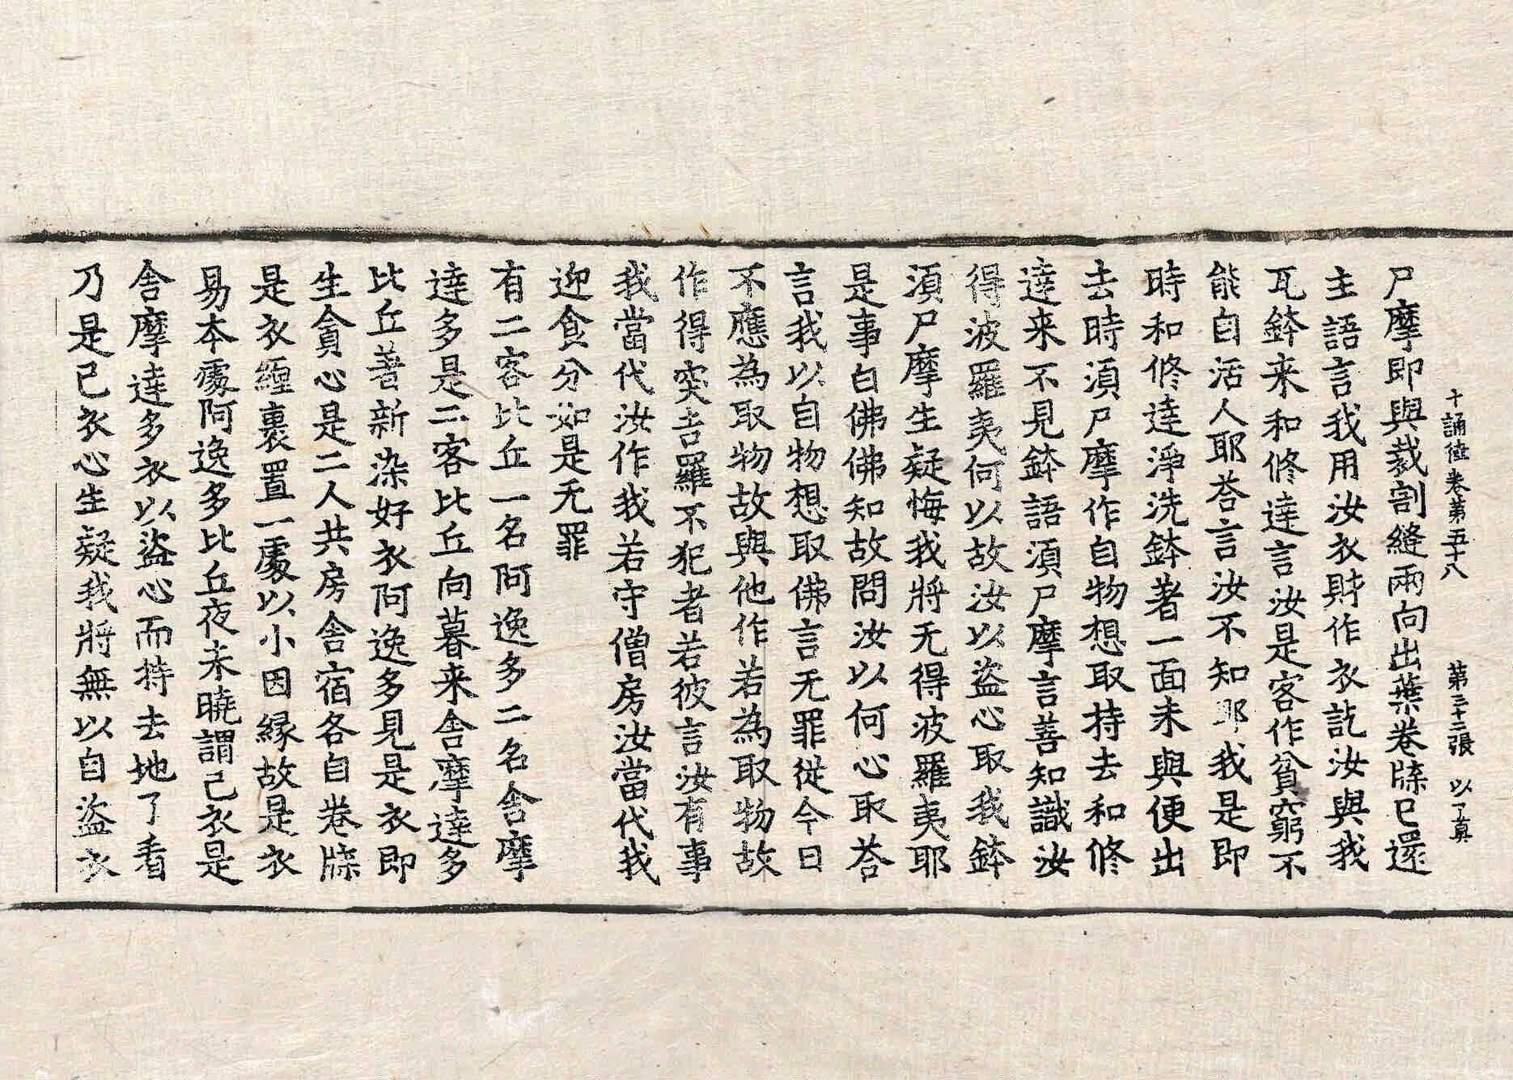 十誦律卷第五十八　第三十二張　以了真
尸摩即與裁割縫兩向出葉卷牒已還
主語言我用汝衣財作衣訖汝與我
瓦鉢来和修達言汝是客作貧窮不
能自活人耶荅言汝不知耶我是即
時和修達淨洗鉢著一面未與便出
去時湏尸摩作自物想取持去和修
達来不見鉢語湏尸摩言善知識汝
得波羅夷何以故汝以盜心取我鉢
湏尸摩生疑悔我將无得波羅夷耶
是事白佛佛知故問汝以何心取荅
言我以自物想取佛言无罪從今日
不應為取物故與他作若為取物故
作得突吉羅不犯者若彼言汝有事
我當代汝作我若守僧房汝當代我
迎食分如是无罪
有二客比丘一名阿逸多二名舍摩
達多是二客比丘向暮来舍摩達多
比丘著新染好衣阿逸多見是衣即
生貪心是二人共房舍宿各自卷牒
是衣纏裹置一處以小因縁故是衣
易本處阿逸多比丘夜未曉謂己衣是
舍摩達多衣以盜心而持去地了看
乃是己衣心生疑我將無以自盜衣